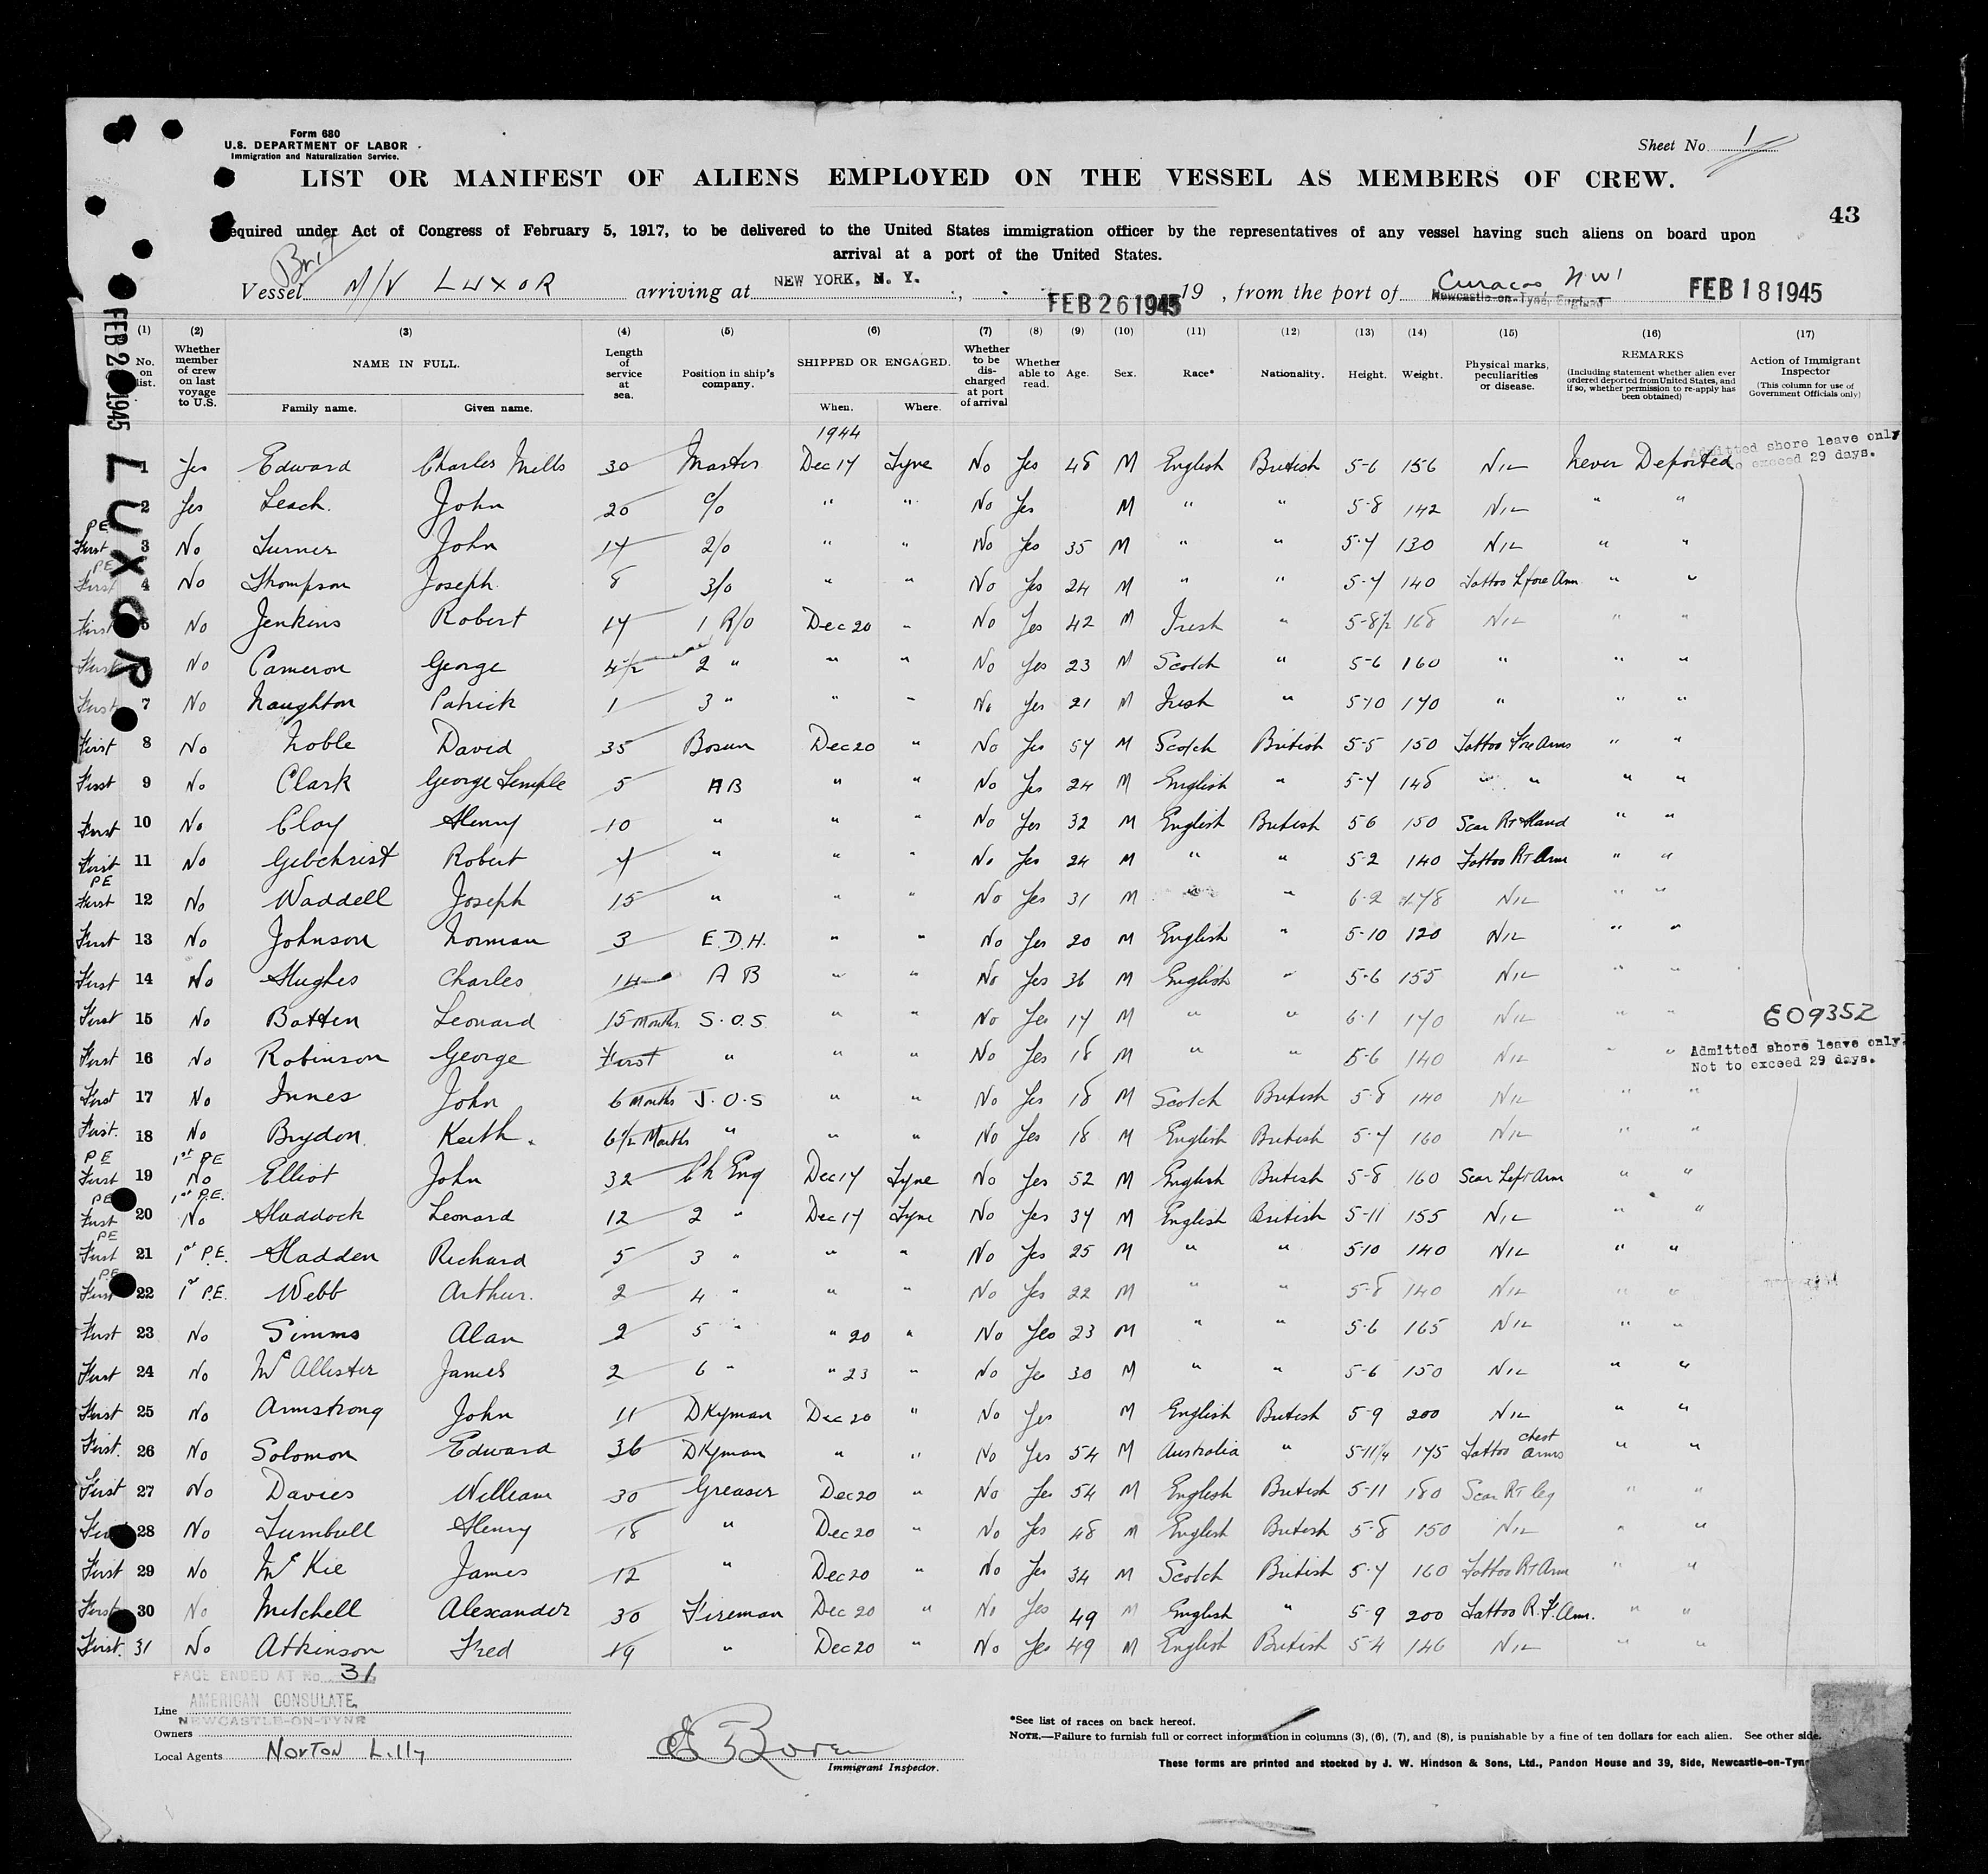 Form 680
U.S. DEPARTMENT OF LABOR
Immigration and Naturalization Service.
Sheet No 1
LIST OR MANIFEST OF ALIENS EMPLOYED ON THE VESSEL AS MEMBERS OF CREW.
43
equired under Act of Congress of February 5, 1917, to be delivered to the United States immigration officer by the representatives of any vessel having such aliens on board upon
arrival at a port of the United States.
Brit
Vessel M/V LUXOR arriving at NEW YORK, N. Y. FEB 26 1945 19 , from the port of Curacao NWI Newcastle-on-Tyne, England FEB 18 1945
FEB 26 1945 LUXOR
(1) (2) (3) (4) (5) (6) (7) (8) (9) (10) (11) (12) (13) (14) (15) (16) (17)
No. on list. Whether member of crew on last voyage to U.S. NAME IN FULL. Length of service at sea. Position in ship's company. SHIPPED OR ENGAGED. Whether to be discharged at port of arrival Whether able to read. Age. Sex. Race* Nationality. Height. Weight. Physical marks, peculiarities or disease. REMARKS (Including statement whether alien ever ordered deported from United States, and if so, whether permission to re-apply has been obtained) Action of Immigrant Inspector (This column for use of Government Officials only)
Family name. Given name. When. Where.
1944
Admitted shore leave only
to exceed 29 days.
1 Yes Edward Charles Mills 30 Master Dec 17 Tyne No Yes 48 M English British 5-6 156 NIL Never Deported
2 Yes Leach John 20 c/o " " No Yes M " " 5-8 142 NIL " "
PE
First 3 No Turner John 17 2/o " " No Yes 35 M " " 5-7 130 NIL " "
PE
First 4 No Thompson Joseph 8 3/o " " No Yes 24 M " " 5-7 140 Tattoo L fore Arm " "
First 5 No Jenkins Robert 17 1 R/o Dec 20 " No Yes 42 M Irish " 5-8½ 168 NIL " "
First No Cameron George 4½ 2 " " " No Yes 23 M Scotch " 5-6 160 " " "
First 7 No Naughton Patrick 1 3 " " " No Yes 21 M Irish " 5-10 170 " " "
First 8 No Noble David 35 Bosun Dec 20 " No Yes 57 M Scotch British 5-5 150 Tattoo Fore Arms " "
First 9 No Clark George Temple 5 AB " " No Yes 24 M English " 5-7 148 " " " "
First 10 No Cloy Henry 10 " " " No Yes 32 M English British 5 6 150 Scar RT Hand " "
First 11 No Gilchrist Robert 7 " " " No Yes 24 M " " 5-2 140 Tattoo RT Arm " "
PE
First 12 No Waddell Joseph 15 " " " No Yes 31 M " " 6-2 178 NIL " "
First 13 No Johnson Norman 3 E.D.H. " " No Yes 20 M English " 5-10 120 NIL " "
First 14 No Hughes Charles 14 A B " " No Yes 36 M English " 5-6 155 NIL " "
First 15 No Batten Leonard 15 Months S.O.S. " " No Yes 17 M " " 6-1 170 NIL " " 609352
First 16 No Robinson George First " " " No Yes 18 M " " 5-6 140 NIL " " Admitted shore leave only.
Not to exceed 29 days.
First 17 No Innes John 6 Months J.O.S " " No Yes 18 M Scotch British 5-8 140 NIL " "
First. 18 No Brydon Keith. 6½ Months " " " No Yes 18 M English British 5-7 160 NIL " "
PE 1st PE
First 19 No Elliot John 32 Ch Eng Dec 17 Tyne No Yes 52 M English British 5-8 160 Scar Left Arm " "
PE 1st P.E.
First 20 No Haddock Leonard 12 2 " Dec 17 Tyne No Yes 37 M English British 5-11 155 NIL " "
PE
First 21 1st P.E. Hadden Richard 5 3 " " " No Yes 25 M " " 5-10 140 NIL " "
P.E
First 22 1st P.E. Webb Arthur. 2 4 " " " No Yes 22 M " " 5-8 140 NIL " "
First 23 No Simms Alan 2 5 " " 20 " No Yes 23 M " " 5-6 165 NIL " "
First 24 No McAllister James 2 6 " " 23 " No Yes 30 M " " 5-6 150 NIL " "
First 25 No Armstrong John 11 DKyman Dec 20 " No Yes M English British 5-9 200 NIL " "
First. 26 No Solomon Edward 36 DKyman " " No Yes 54 M Australia " 5-11¼ 175 Tattoo chest arms " "
First 27 No Davies William 30 Greaser Dec 20 " No Yes 54 M English British 5-11 180 Scar RT leg " "
First 28 No Turnbull Henry 18 " Dec 20 " No Yes 48 M English British 5-8 150 NIL " "
First 29 No McKie James 12 " Dec 20 " No Yes 34 M Scotch British 5-7 160 Tattoo RT Arm " "
First 30 No Mitchell Alexander 30 Fireman Dec 20 " No Yes 49 M English " 5-9 200 Tattoo R.F. Arm. " "
First. 31 No Atkinson Fred 19 " Dec 20 " No Yes 49 M English British 5-4 146 NIL " "
PAGE ENDED AT No. 31
AMERICAN CONSULATE,
Line
NEWCASTLE-ON-TYNE
Owners
Local Agents Norton Lilly
Immigrant Inspector.
*See list of races on back hereof.
NOTE.—Failure to furnish full or correct information in columns (3), (6), (7), and (8), is punishable by a fine of ten dollars for each alien. See other side.
These forms are printed and stocked by J. W. Hindson & Sons, Ltd., Pandon House and 39, Side, Newcastle-on-Tyne